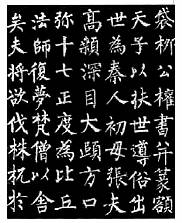 袋柳公權書并篆額
天子以扶世導俗出
世為秦人初母張夫
高顙深目大頤方口
十七正度為比丘
法師復夢梵僧以舍
矣夫將欲伐株杌於